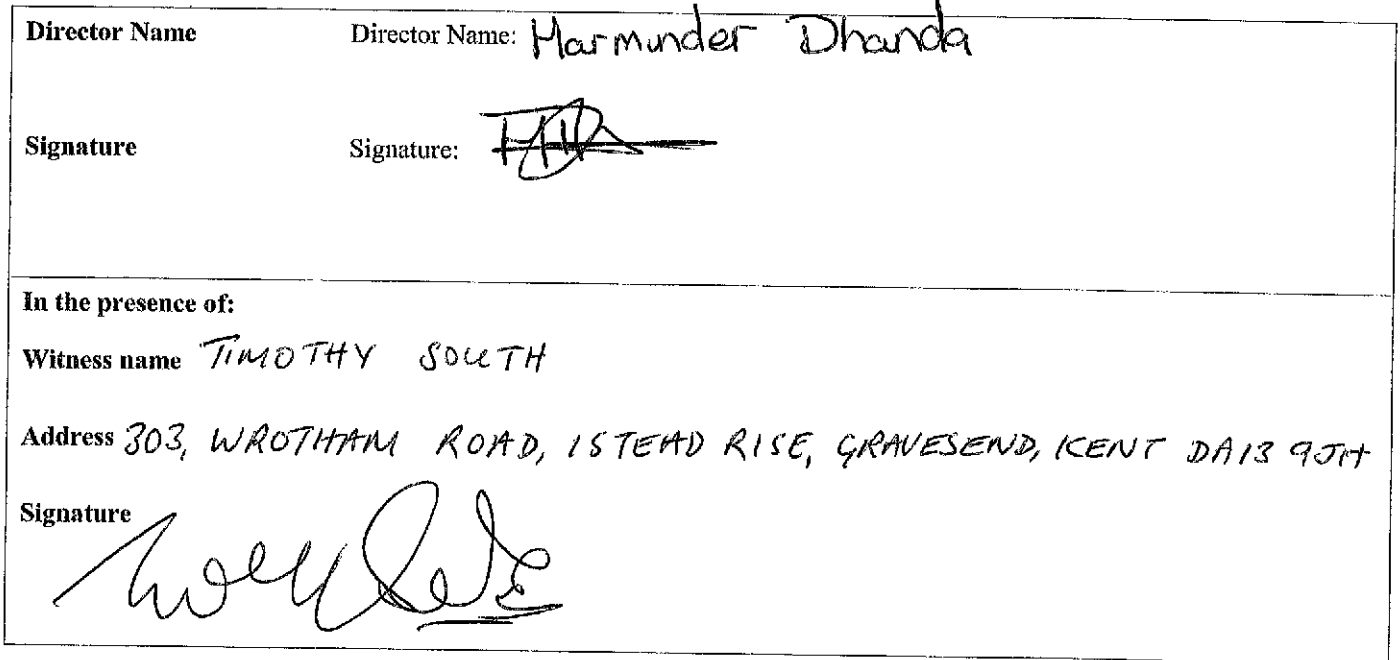 Director Name Director Name: Harminder Dhanda
Signature Signature:
In the presence of:
Witness name TIMOTHY SOUTH
Address 303, WROTHAM ROAD, ISTEAD RISE, GRAVESEND, KENT DA13 9JH
Signature